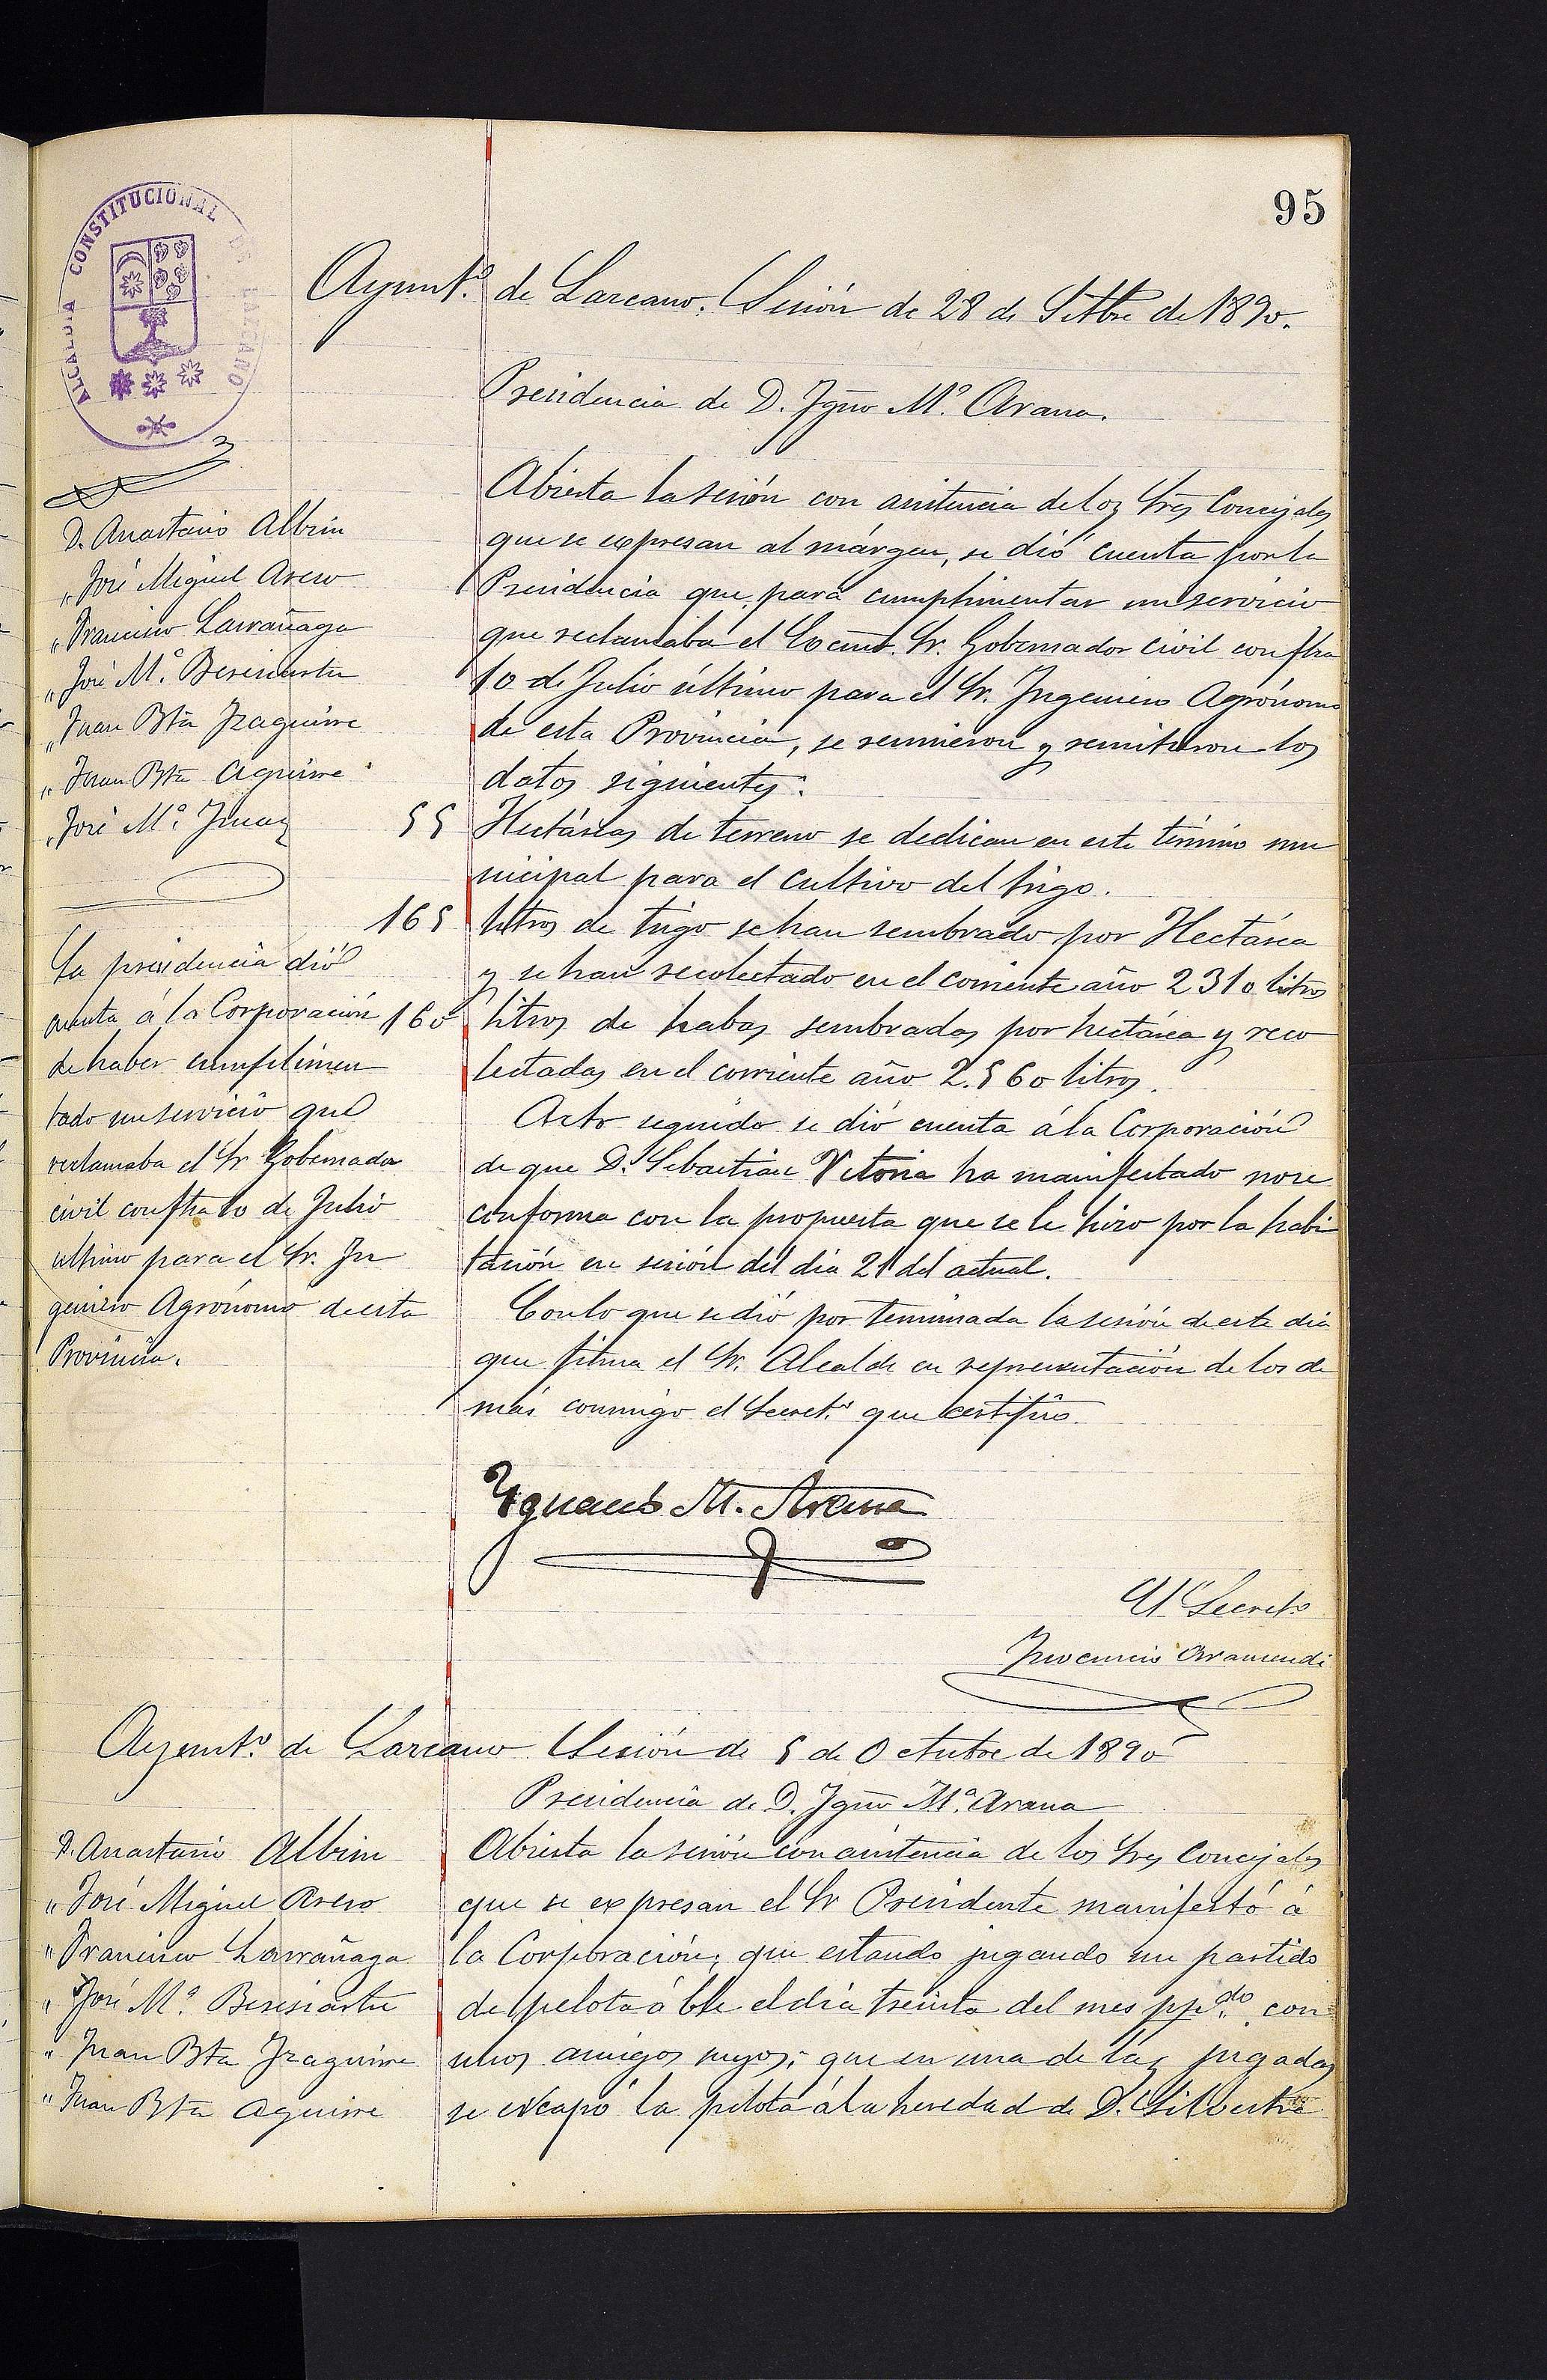 95
ALCALDIA CONSTITUCIONAL DE LAZCANO
Ayunt.º de Lazcano. Sesión de 28 de Setbre de 1890.
Presidencia de D. Ygnº M.ª Arana.
D. Anastasio Albizu
" José Miguel Areso
" Francisco Larrañaga
" José M.ª Beresiartu
" Juan Bta Yzaguirre
" Juan Bta Aguirre
" José M.ª Ymaz
La presidencia dió
cuenta á la Corporación
de haber cumplimen
tado un servicio que
reclamaba el Sr Gobernador
civil con fha 10 de Julio
último para el Sr. In
geniero Agrónomo de esta
Provincia.
Abierta la sesión con asistencia de los Sres Concejales
que se expresan al márgen, se dió cuenta por la
Presidencia que, para cumplimentar un servicio
que reclamaba el Excmo. Sr. Gobernador civil con fha
10 de Julio último para el Sr. Ingeniero Agrónomo
de esta Provincia, se reunieron y remitieron los
datos siguientes:
55 Hectáreas de terreno se dedican en este término mu
nicipal para el cultivo del trigo.
165 litros de trigo se han sembrado por Hectárea
y se han recolectado en el corriente año 2310 litros
160 litros de habas sembradas por hectárea y reco
lectadas en el corriente año 2.560 litros.
Acto seguido se dió cuenta á la Corporación
de que D. Sebastian Vitoria ha manifestado no se
conforma con la propuesta que se le hizo por la habi
tación en sesión del dia 21 del actual.
Con lo que se dió por terminada la sesión de este dia
que firma el Sr. Alcalde en representación de los de
más conmigo el Secret.º que certifico.
Ygnacio M. Arana
El Secretº
Inocencio Aramendi
Ayunt.º de Lazcano Sesión de 5 de Octubre de 1890
Presidencia de D. Ygnº M.ª Arana
D. Anastasio Albizu
" José Miguel Areso
" Francisco Larrañaga
" José M.ª Beresiartu
" Juan Bta Yzaguirre
" Juan Bta Aguirre
Abierta la sesión con asistencia de los Sres Concejales
que se expresan el Sr Presidente manifestó á
la Corporación; que estando jugando un partido
de pelota á ble el dia treinta del mes ppdo. con
unos amigos suyos; que en una de las jugadas
se escapó la pelota á la heredad de D. Silvestre